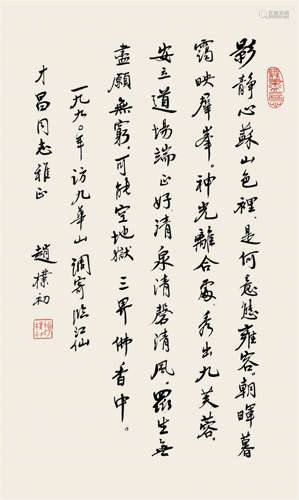 影靜心蘇山色裡。是何意態雍容。朝暉暮
靄映羣峯。神光離合處。秀出九芙蓉。
安立道場端正好。清泉清磬清風。眾生無
盡願無窮。可能空地獄。三界佛香中。
一九九〇年訪九華山 調寄臨江仙
才昌同志雅正 趙樸初